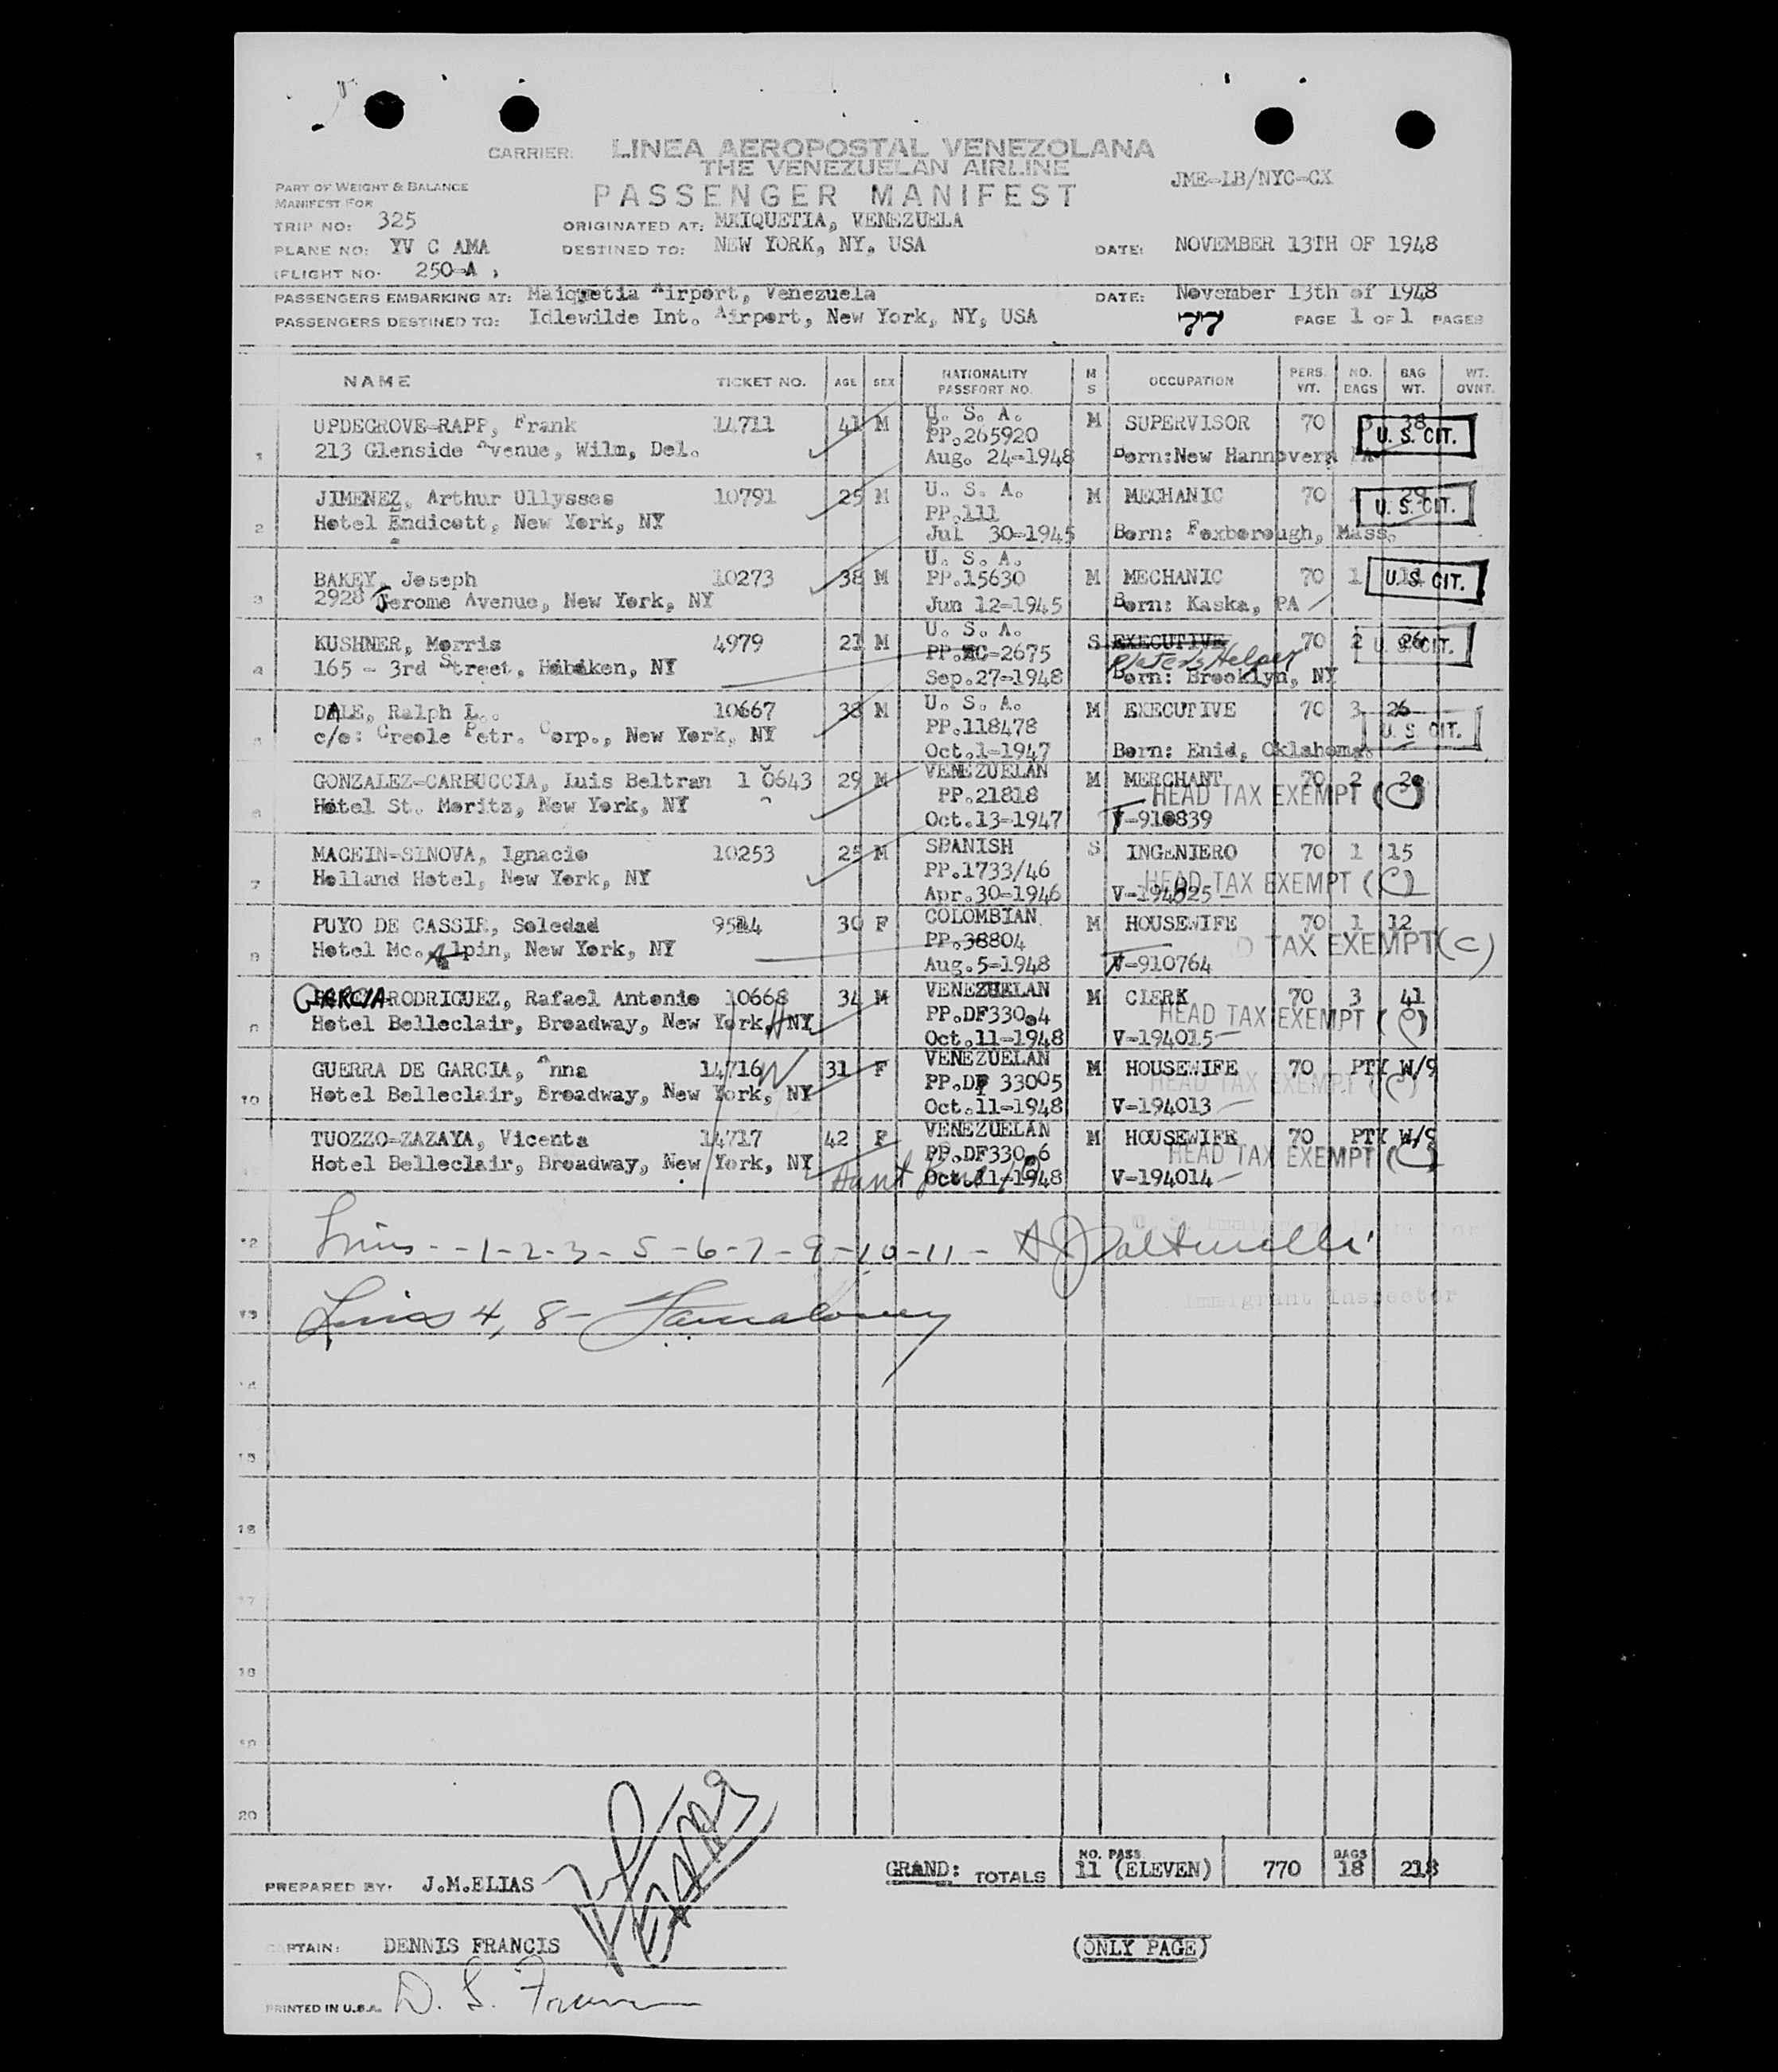 CARRIER: LINEA AEROPOSTAL VENEZOLANA
THE VENEZUELAN AIRLINE
JME-LB/NYC-CX
PART OF WEIGHT & BALANCE
MANIFEST FOR
PASSENGER MANIFEST
TRIP NO: 325 ORIGINATED AT: MAIQUETIA, VENEZUELA
PLANE NO: YV C AMA DESTINED TO: NEW YORK, NY, USA DATE: NOVEMBER 13TH OF 1948
(FLIGHT NO. 250-A )
PASSENGERS EMBARKING AT: Maiquetia Airport, Venezuela DATE: November 13th of 1948
PASSENGERS DESTINED TO: Idlewilde Int. Airport, New York, NY, USA 77 PAGE 1 OF 1 PAGES
NAME TICKET NO. AGE SEX NATIONALITY PASSPORT NO. M S OCCUPATION PERS. WT. NO. BAGS BAG WT. WT. OVNT.
UPDEGROVE-RAPP, Frank 14711 41 M U. S. A. M SUPERVISOR 70 3 38
PP.265920 U. S. CIT.
1 213 Glenside Avenue, Wilm, Del. Aug. 24-1948 Born:New Hannover, PA
JIMENEZ, Arthur Ullysses 10791 25 M U. S. A. M MECHANIC 70 29
PP.111 U. S. CIT.
2 Hotel Endicott, New York, NY Jul 30-1945 Born: Foxborough, Mass.
U. S. A.
BAKEY, Joseph 10273 38 M PP.15630 M MECHANIC 70 1 U. S. CIT.
3 2928 Jerome Avenue, New York, NY Jun 12-1945 Born: Kaska, PA
U. S. A.
KUSHNER, Morris 4979 21 M PP. C-2675 S EXECUTIVE 70 2 26 U. S. CIT.
Plater's Helper
4 165 - 3rd Street, Hoboken, NY Sep.27-1948 Born: Brooklyn, NY
DALE, Ralph L.. 10667 38 M U. S. A. M EXECUTIVE 70 3 26
PP.118478 U. S. CIT.
5 c/o: Creole Petr. Corp., New York, NY Oct.1-1947 Born: Enid, Oklahoma.
GONZALEZ-CARBUCCIA, Luis Beltran 1 0643 29 M VENEZUELAN M MERCHANT 70 2 20
PP.21818 HEAD TAX EXEMPT (C)
6 Hotel St. Moritz, New York, NY Oct.13-1947 V-910839
MACEIN-SINOVA, Ignacio 10253 25 M SPANISH S INGENIERO 70 1 15
PP.1733/46 HEAD TAX EXEMPT (C)
7 Holland Hotel, New York, NY Apr.30-1946 V-194025
PUYO DE CASSIR, Soledad 9544 30 F COLOMBIAN M HOUSEWIFE 70 1 12
PP.38804 D TAX EXEMPT (C)
8 Hotel Mc.Alpin, New York, NY Aug.5-1948 V-910764
GARCIA-RODRIGUEZ, Rafael Antonio 10668 34 M VENEZUELAN M CLERK 70 3 41
PP.DF33004 HEAD TAX EXEMPT (C)
9 Hotel Belleclair, Broadway, New York, NY H Oct.11-1948 V-194015
GUERRA DE GARCIA, Anna 14716 W 31 F VENEZUELAN M HOUSEWIFE 70 PTY W/9
PP.DF 33005 HEAD TAX EXEMPT (C)
10 Hotel Belleclair, Broadway, New York, NY Oct.11-1948 V-194013
TUOZZO-ZAZAYA, Vicenta 14717 42 F VENEZUELAN M HOUSEWIFE 70 PTY W/9
PP.DF33006 HEAD TAX EXEMPT (C)
Hotel Belleclair, Broadway, New York, NY Aunt Oct.11-1948 V-194014
12 Lines - - 1 - 2 - 3 - 5 - 6 - 7 - 9 - 10 - 11 -
13 Lines 4, 8 -
Immigrant Inspector
14
15
16
17
18
19
20
PREPARED BY: J.M.ELIAS GRAND: TOTALS NO. PASS. 11 (ELEVEN) 770 BAGS 18 218
CAPTAIN: DENNIS FRANCIS (ONLY PAGE)
PRINTED IN U.S.A. D. S.